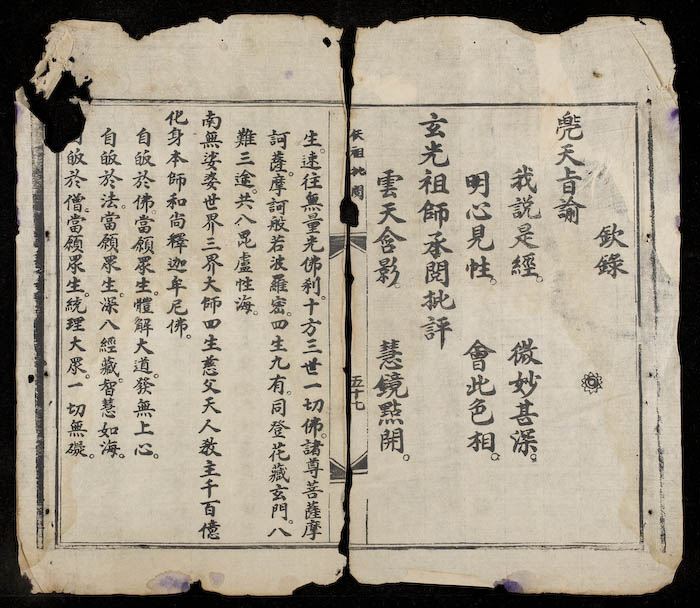 欽錄
兠天旨諭
我說是經。 微妙甚深。
明心見性。 會此色相。
玄光祖師承閱批評
雲天含影。 慧鏡點開。
祖批閱
五十七
生。速往無量光佛刹。十方三世一切佛。諸尊菩薩摩
訶薩。摩訶般若波羅密。四生九有。同登花藏玄門。八
難三途。共入毘盧性海。
南無娑婆世界三界大師四生慈父天人教主千百億
化身本師和尚釋迦牟尼佛。
自皈於佛。當願眾生。體解大道。發無上心。
自皈於法。當願眾生。深入經藏。智慧如海。
皈於僧。當願眾生。統理大眾。一切無礙。